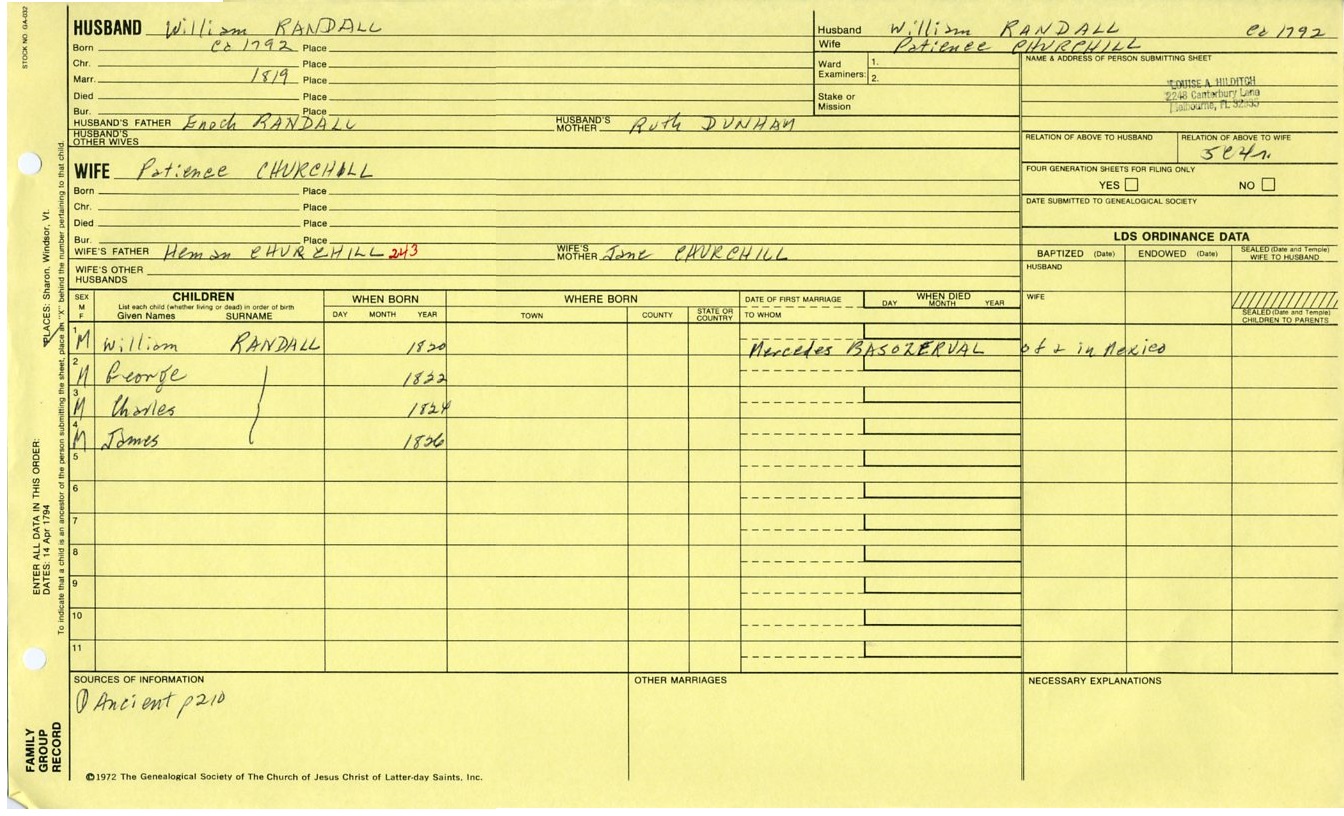 STOCK NO. GA-032
HUSBAND William RANDALL
Born ca 1792 Place
Chr. Place
Marr. 1819 Place
Died Place
Bur. Place
HUSBAND'S FATHER Enoch RANDALL HUSBAND'S MOTHER Ruth DUNHAM
HUSBAND'S OTHER WIVES
WIFE Patience CHURCHILL
Born Place
Chr. Place
Died Place
Bur. Place
WIFE'S FATHER Heman CHURCHILL 243 WIFE'S MOTHER Jane CHURCHILL
WIFE'S OTHER HUSBANDS
Husband William RANDALL ca 1792
Wife Patience CHURCHILL
Ward Examiners: 1.
2.
Stake or Mission
NAME & ADDRESS OF PERSON SUBMITTING SHEET
LOUISE A. HILDITCH
2248 Canterbury Lane
Melbourne, FL 32935
RELATION OF ABOVE TO HUSBAND RELATION OF ABOVE TO WIFE
5c4r
FOUR GENERATION SHEETS FOR FILING ONLY
YES NO
DATE SUBMITTED TO GENEALOGICAL SOCIETY
LDS ORDINANCE DATA
BAPTIZED (Date) ENDOWED (Date) SEALED (Date and Temple) WIFE TO HUSBAND
HUSBAND
WIFE
SEALED (Date and Temple) CHILDREN TO PARENTS
SEX M F
CHILDREN
List each child (whether living or dead) in order of birth
Given Names SURNAME
WHEN BORN
DAY MONTH YEAR
WHERE BORN
TOWN COUNTY STATE OR COUNTRY
DATE OF FIRST MARRIAGE
TO WHOM
WHEN DIED
DAY MONTH YEAR
1 M William RANDALL 1820 Mercedes BASOZERVAL of 2 in Mexico
2 M George 1822
3 M Charles 1824
4 M James 1826
5
6
7
8
9
10
11
SOURCES OF INFORMATION
① Ancient p210
OTHER MARRIAGES
NECESSARY EXPLANATIONS
©1972 The Genealogical Society of The Church of Jesus Christ of Latter-day Saints, Inc.
FAMILY GROUP RECORD
ENTER ALL DATA IN THIS ORDER:
DATES: 14 Apr 1794
PLACES: Sharon, Windsor, Vt.
To indicate that a child is an ancestor of the person submitting the sheet, place an "X" behind the number pertaining to that child.